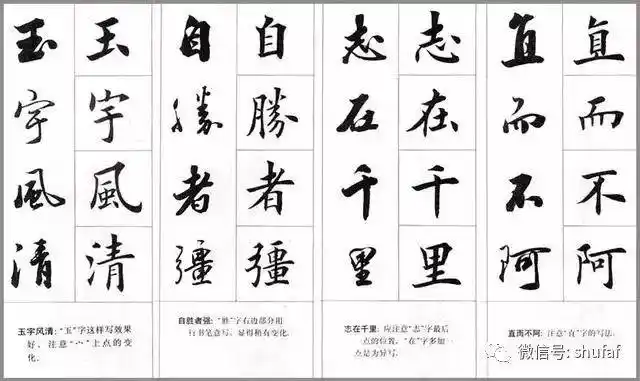 玉 玉
宇 宇
風 風
清 清
玉宇风清：“玉”字这样写效果
好、注意“宀”上点的变
化.
自 自
勝 勝
者 者
彊 彊
自胜者强：“胜”字右边部分用
行书笔意写，显得稍有变化.
志 志
在 在
千 千
里 里
志在千里：应注意“志”字最后
一点的位置，“在”字多加一
点是为异写.
直 直
而 而
不 不
阿 阿
直而不阿：注意“直”字的写法.
微信号: shufaf